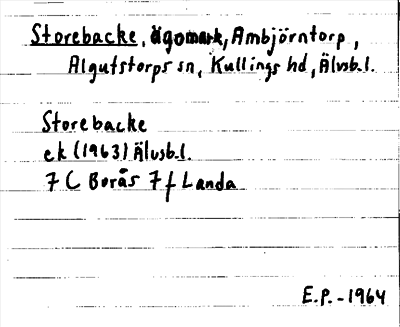 Storebacke, ägomark, Ambjörntorp,
Algutstorps sn, Kullings hd, Älvsb.l.
Storebacke
ek (1963) Älvsb.l.
7 C Borås 7 f Landa
E.P. - 1964